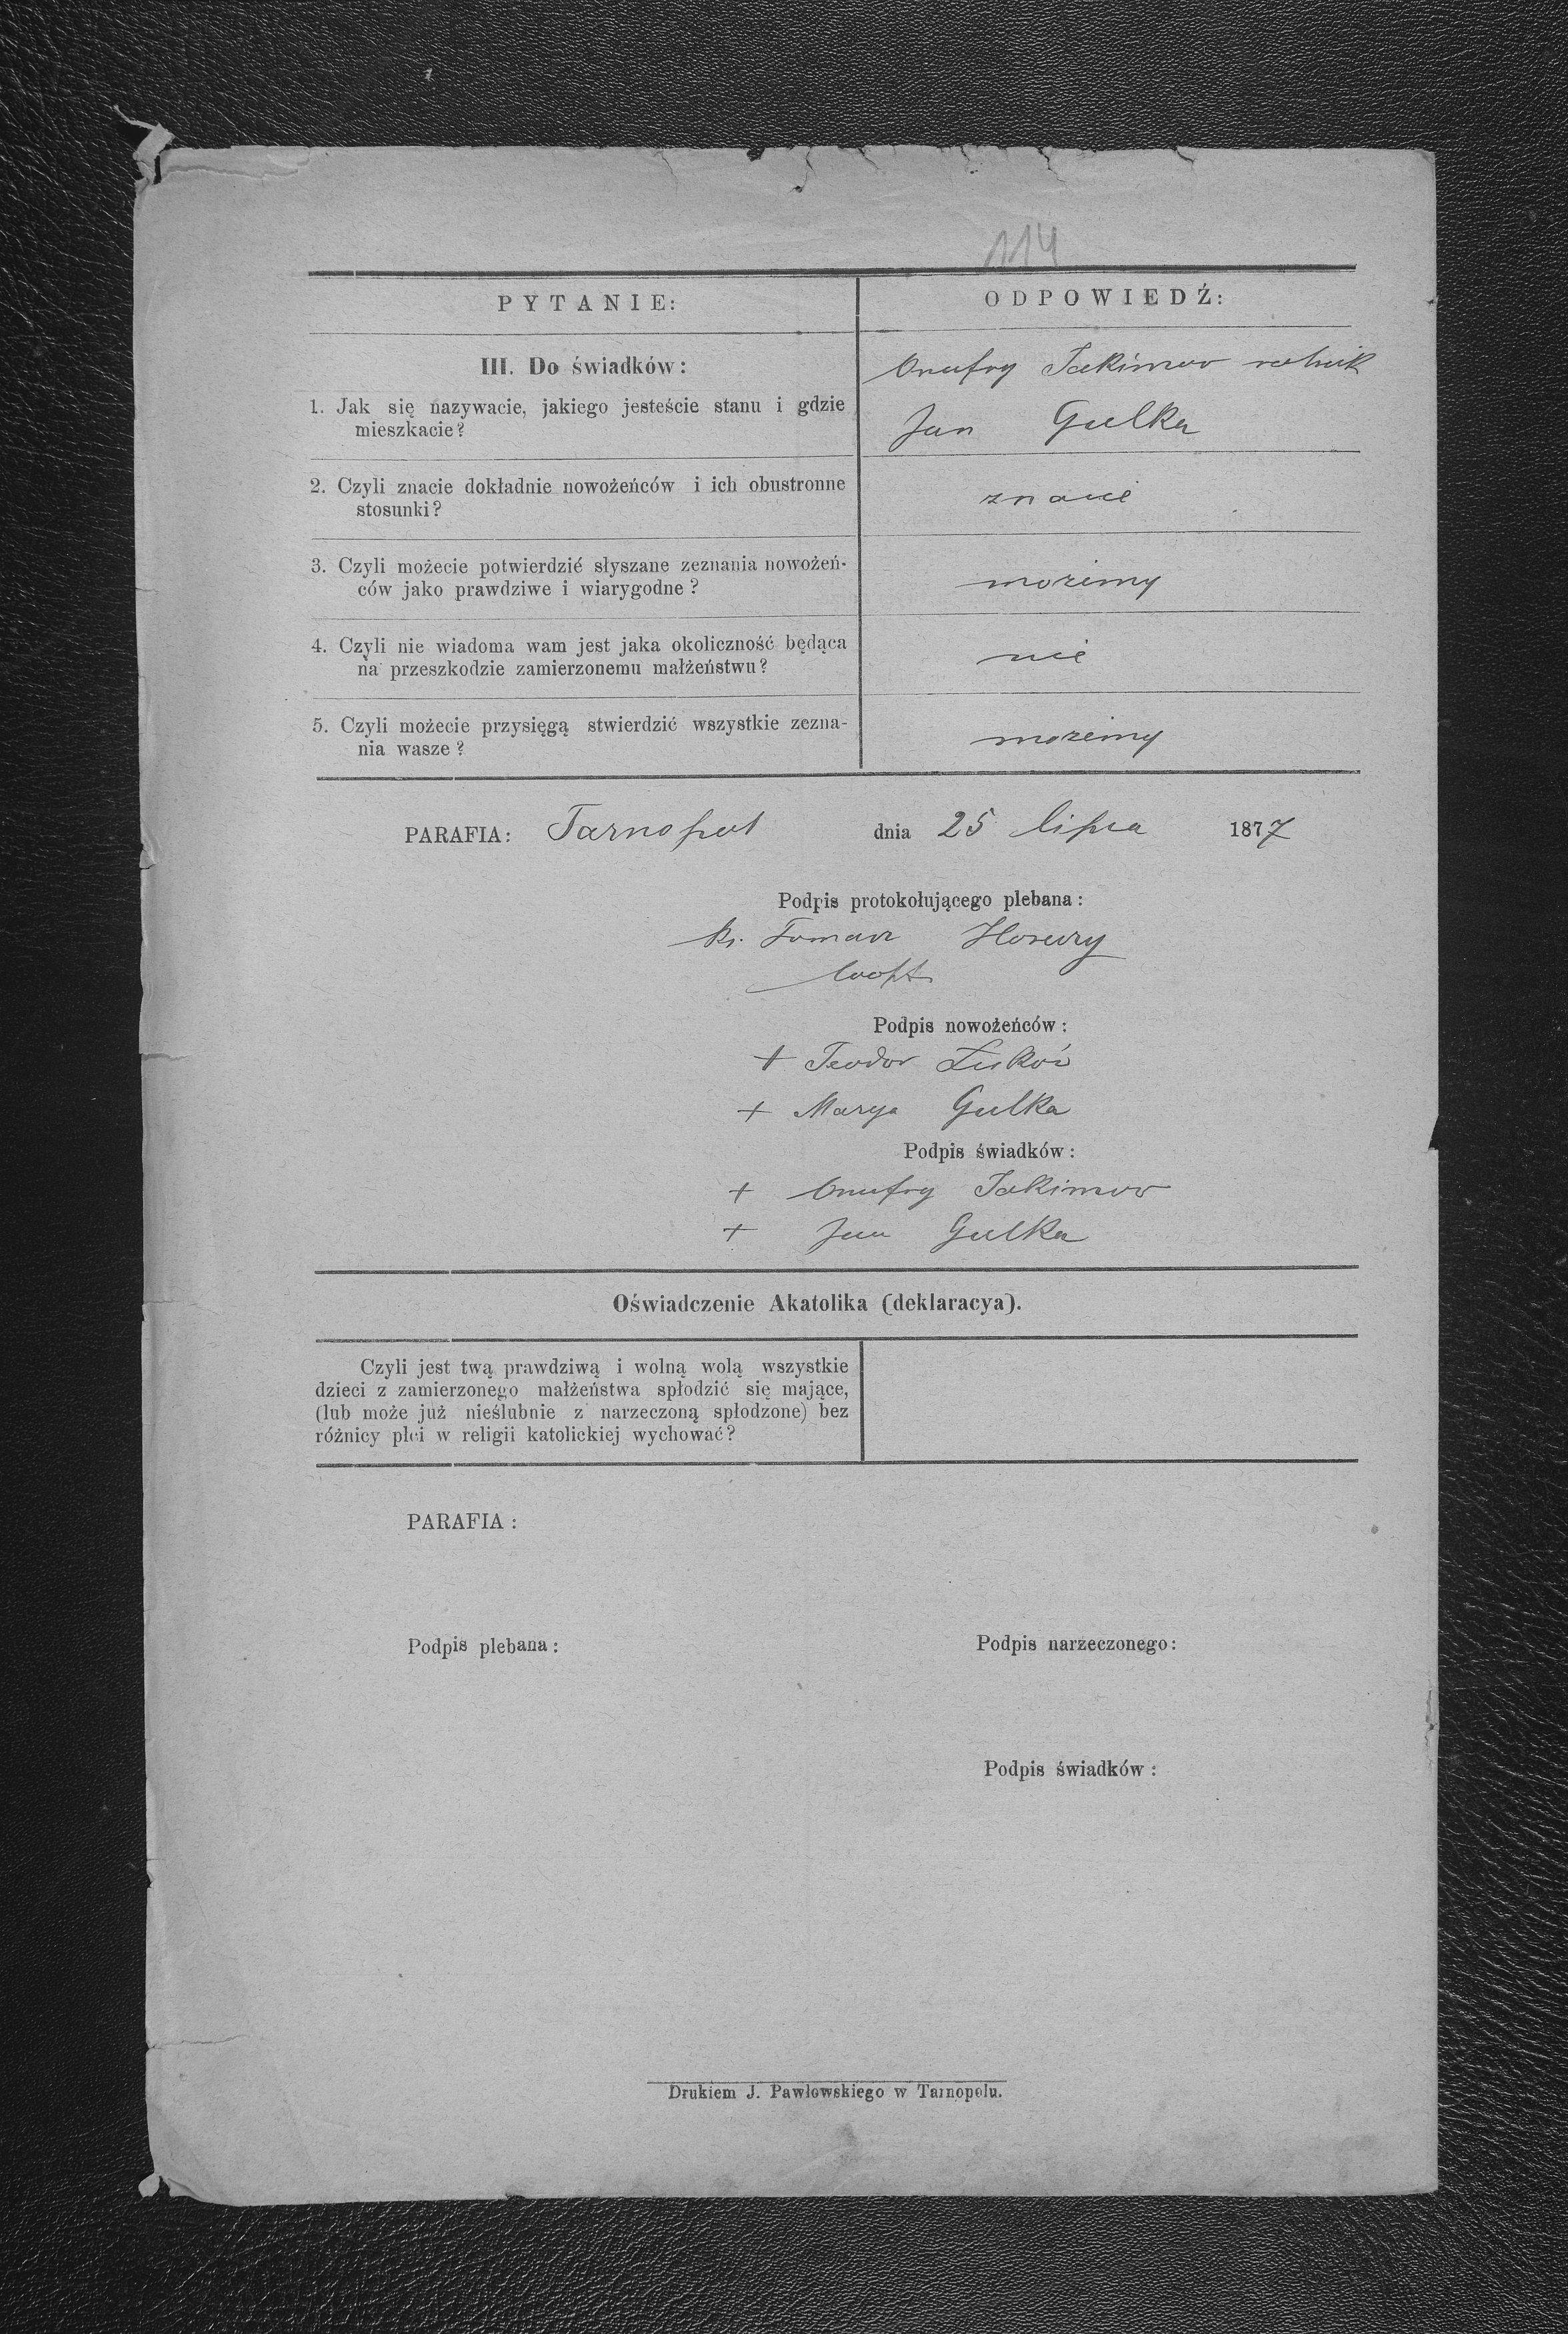 114
PYTANIE:
ODPOWIEDŹ:
III. Do świadków:
1. Jak się nazywacie, jakiego jesteście stanu i gdzie
mieszkacie?
Onufry Jakimow rolnik
Jan Gulka
2. Czyli znacie dokładnie nowożeńców i ich obustronne
stosunki?
3. Czyli możecie potwierdzić słyszane zeznania nowożeń-
ców jako prawdziwe i wiarygodne?
możemy
4. Czyli nie wiadoma wam jest jaka okoliczność będąca
na przeszkodzie zamierzonemu małżeństwu?
nie
5. Czyli możecie przysięgą stwierdzić wszystkie zezna-
nia wasze?
możemy
PARAFIA: Tarnopol dnia 25 lipca 1877
Podpis protokołującego plebana:
ks. Tomasz
Podpis nowożeńców:
+ Teodor
+ Marya Gulka
Podpis świadków:
+ Onufry Jakimow
+ Jan Gulka
Oświadczenie Akatolika (deklaracya).
Czyli jest twą prawdziwą i wolną wolą wszystkie
dzieci z zamierzonego małżeństwa spłodzić się mające,
(lub może już nieślubnie z narzeczoną spłodzone) bez
różnicy płci w religii katolickiej wychować?
PARAFIA:
Podpis plebana:
Podpis narzeczonego:
Podpis świadków:
Drukiem J. Pawłowskiego w Tarnopolu.